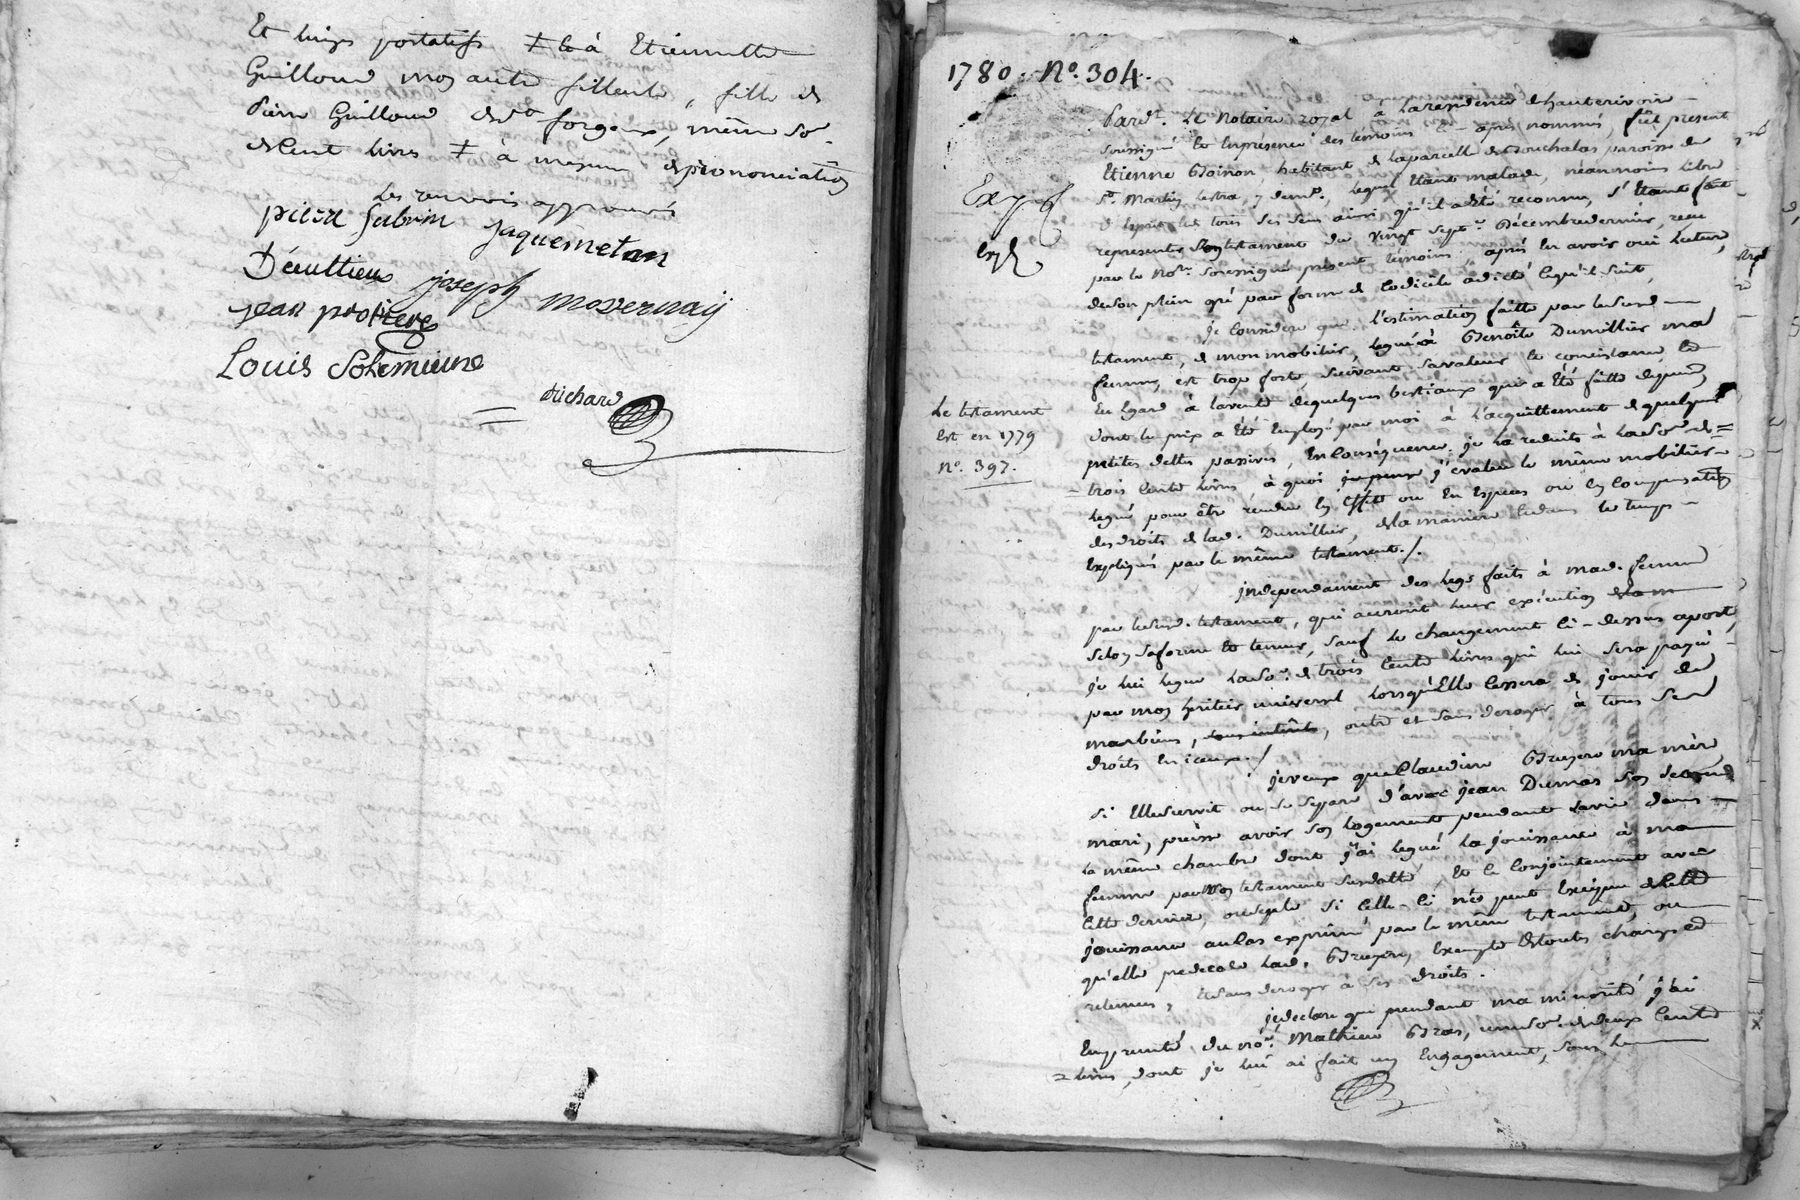 Et linges portatifs ≠ & à Etiennette
Guilloud mon autre filleule, fille de
Pierre Guilloud dud. forgeux, même so.
de Cent livres ≠ à mesure de prononciation
Les renvois approuvés
pierre fabrin jaquemetan
Decultieux joseph mosernay
jean protiere
Louis Solemieune
Richard
1780. No. 304.
Pard.t Le Notaire royal à la résidence d'hauterivoire
soussigné et En présence des temoins ci-après nommés, fût présent
Etienne Boinon habitant de la parcelle de Bouchalas paroisse de
St. Martin Lestra, y demt. lequel Etant malade, néanmoins libre
de tous ses sens ainsi qu'il a été reconnu, s'étant fait
representer Son testament du Vingt sept Décembre dernier, reçu
par le No.re Soussigné présent temoins, après En avoir oui Lecture,
de son plein gré par forme de Codicile a dicté Ce qu'il Suit,
je Considere que l'estimation faitte par le susd.
testament, de mon mobilier, legué à Benoîte Dumillier ma
femme, est trop forte, suivant sa valeur et consistance, et
En Egard à la vente de quelques bestiaux qui a été faitte depuis
dont le prix a Eté Employé par moi à l'acquittement de quelques
petites dettes passives, En Conséquence, je la reduits à la So.e de
trois Cents livres, à quoi j'evalue le même mobilier
legué pour être rendu En Effets ou En Especes ou En Compensation
des droits de lad. Dumillier, de la maniere & dans le temps
Expliqués par le même testament./.
Independament des legs faits à mad. femme
par le susd. testament, qui auront leur exécution
selon sa forme et teneur, sauf le changement ci-dessus aporté,
je lui legue la So.e de trois Cents livres qui lui sera payée
par mon heritier universel lorsqu'Elle Cessera de jouir de
mes biens, sans intérêts, outre et sans deroger à tous ses
droits En iceux./
je veux que Claudine Bruyere ma mère
si Elle survit ou se separe d'avec jean Dumas son second
mari, puisse avoir son logement pendant sa vie dans
la même chambre dont j'ai legué la jouissance à ma
femme par mon testament susdatté, et ce Conjointement avec
Cette derniere, ou seule si Celle-ci n'est pent de Cette
jouissance au Cas exprimé par le même testament, ou
qu'elle predecede lad. Bruyere, Exempte de toutes charges et
retenues, & sans deroger à ses droits.
je declare que pendant ma minorité j'ai
Emprunté du No.re Mathieu Bras, une So.e de deux Cents
livres, dont je lui ai fait un Engagement, sous
Exp.
Exp.
Le testament
Est en 1779
No. 397.